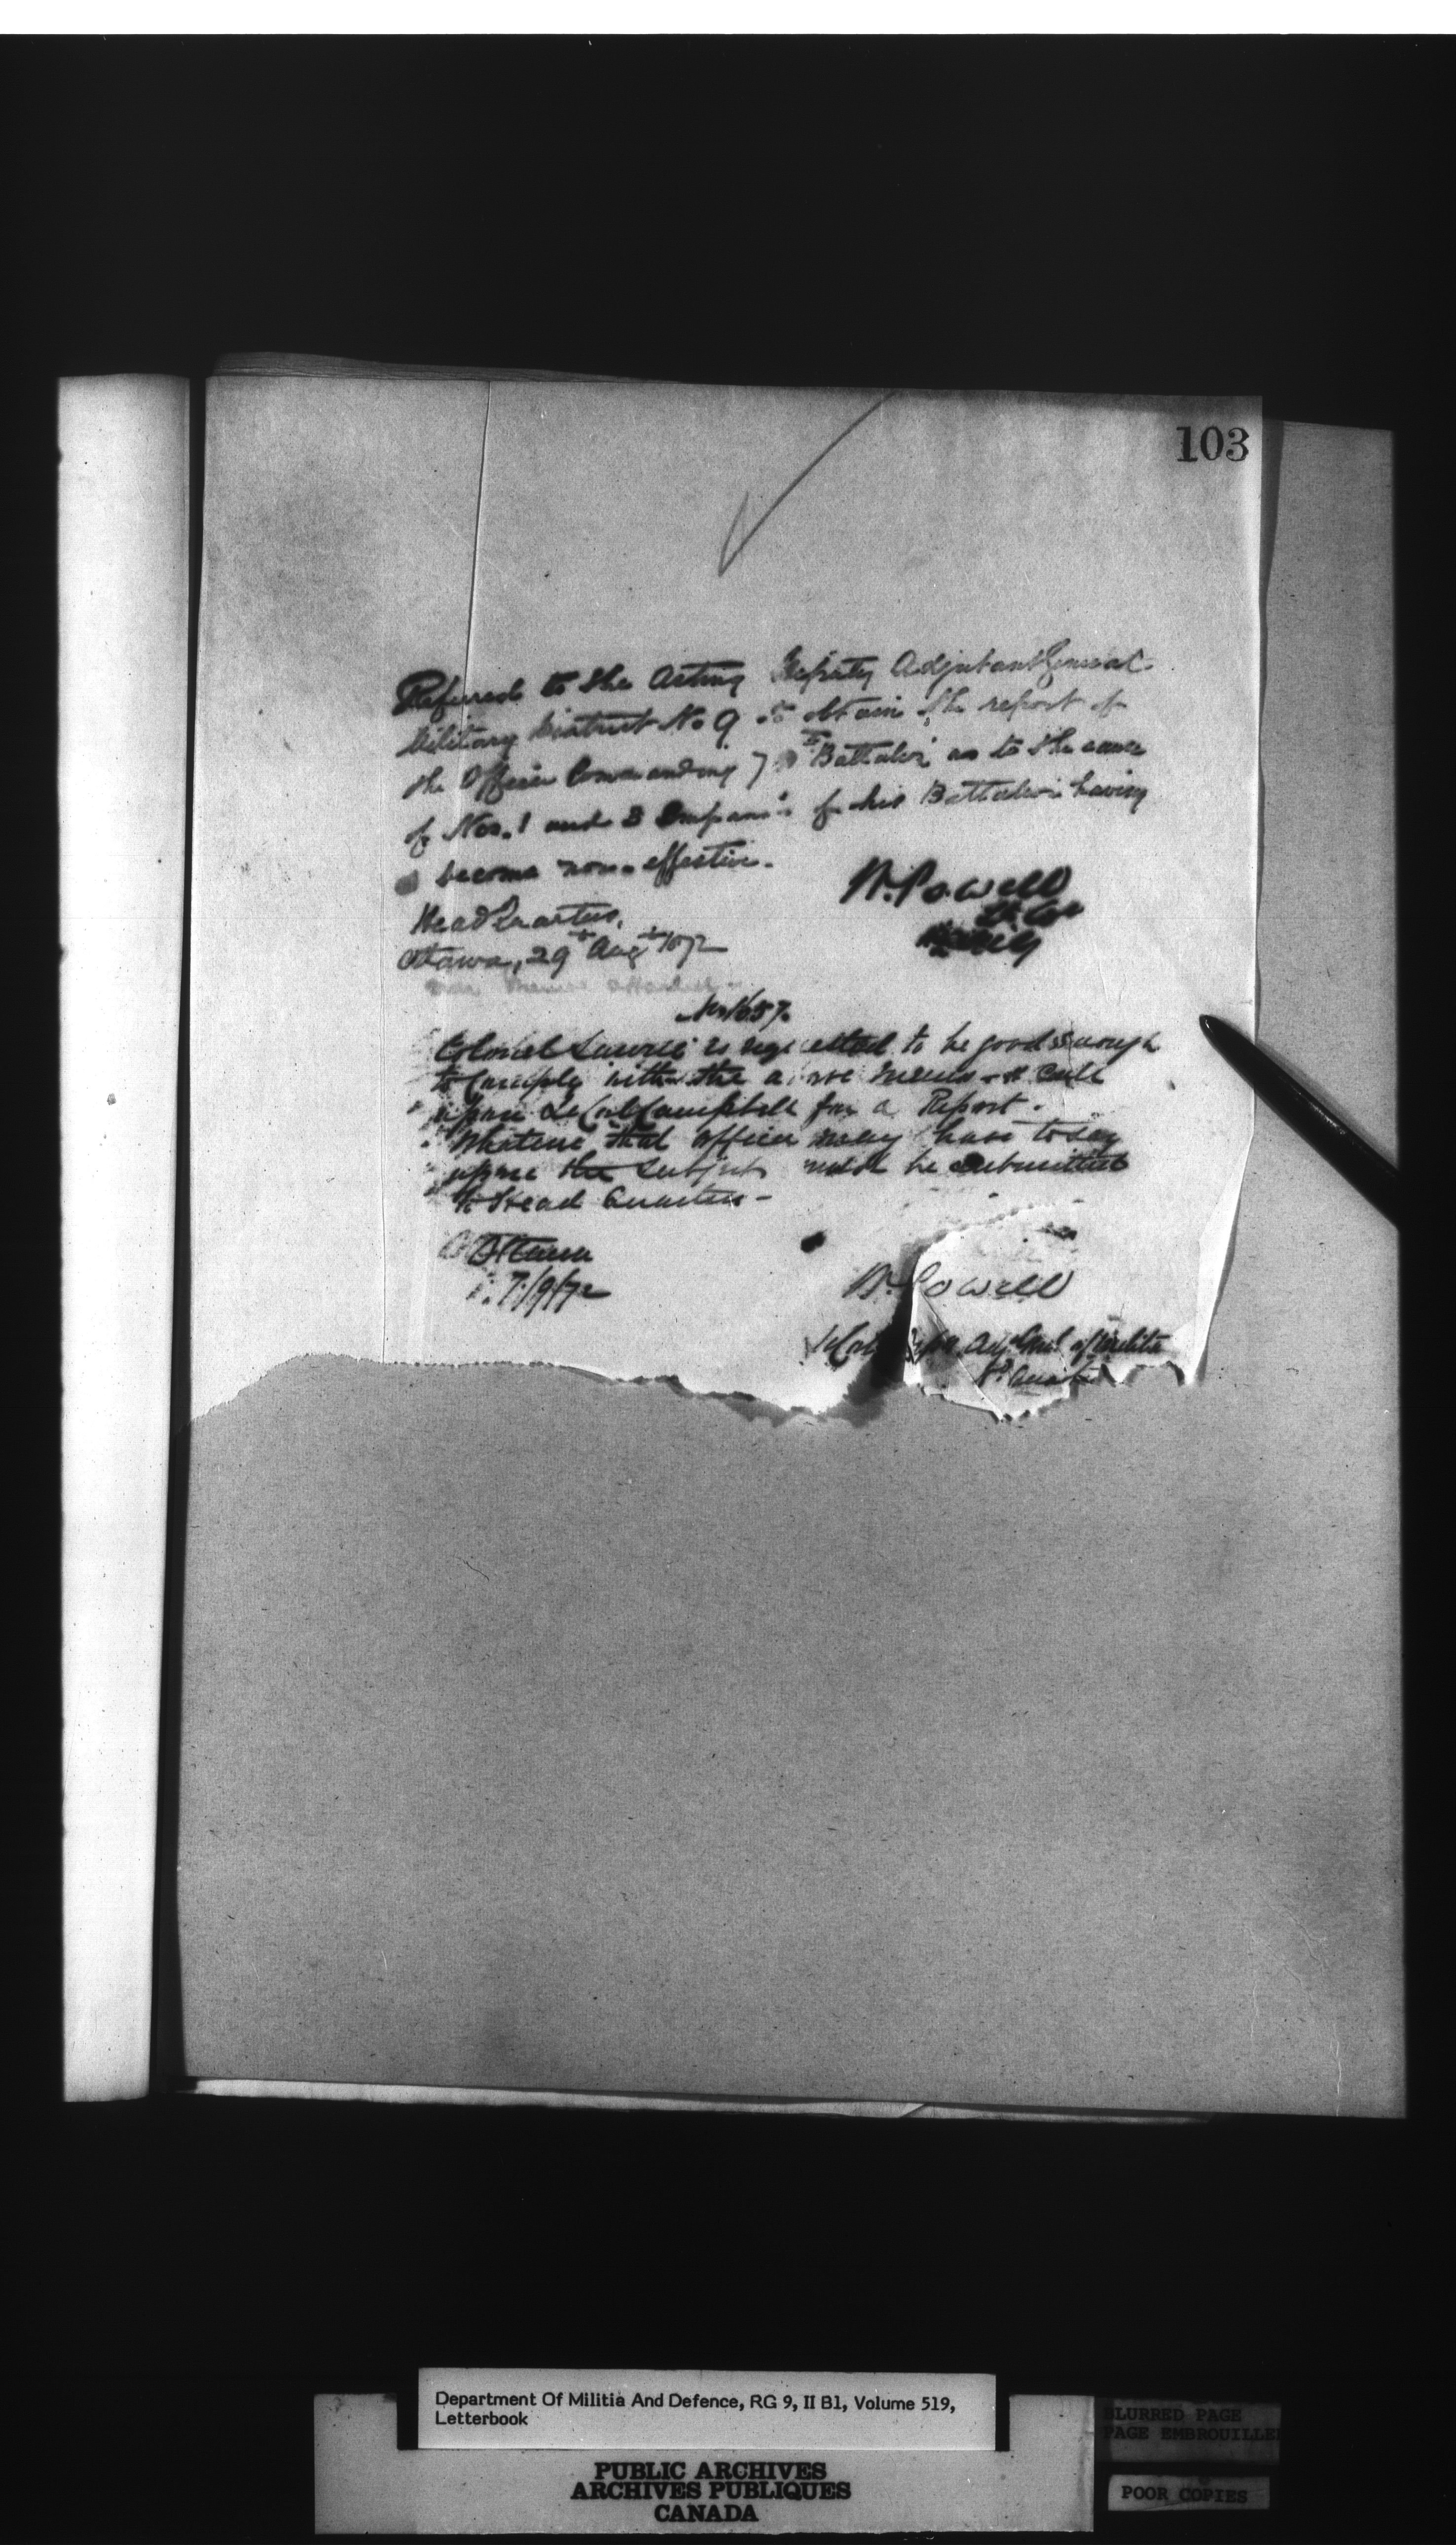 103
Referred to the Acting Deputy Adjutant General
Military District No 9 to obtain the report of
the Officer Commanding 7 Battalion as to the cause
of Nos. 1 and 3 Companies of his Battalion having
become non-effective.
W. Powell
Lt Col
Head Quarters,
Ottawa, 29th Augt 1872
No 1657.
Colonel Laurie is requested to be good enough
to comply with the above memo - & call
upon Lt Col Campbell for a Report.
Whatever that officer may have to say
upon the subject must be submitted
to Head Quarters -
Ottawa
7/9/72
W. Powell
Adj Genl of Militia
Hd Quarters
Department Of Militia And Defence, RG 9, II B1, Volume 519,
Letterbook
PUBLIC ARCHIVES
ARCHIVES PUBLIQUES
CANADA
BLURRED PAGE
PAGE EMBROUILLE
POOR COPIES